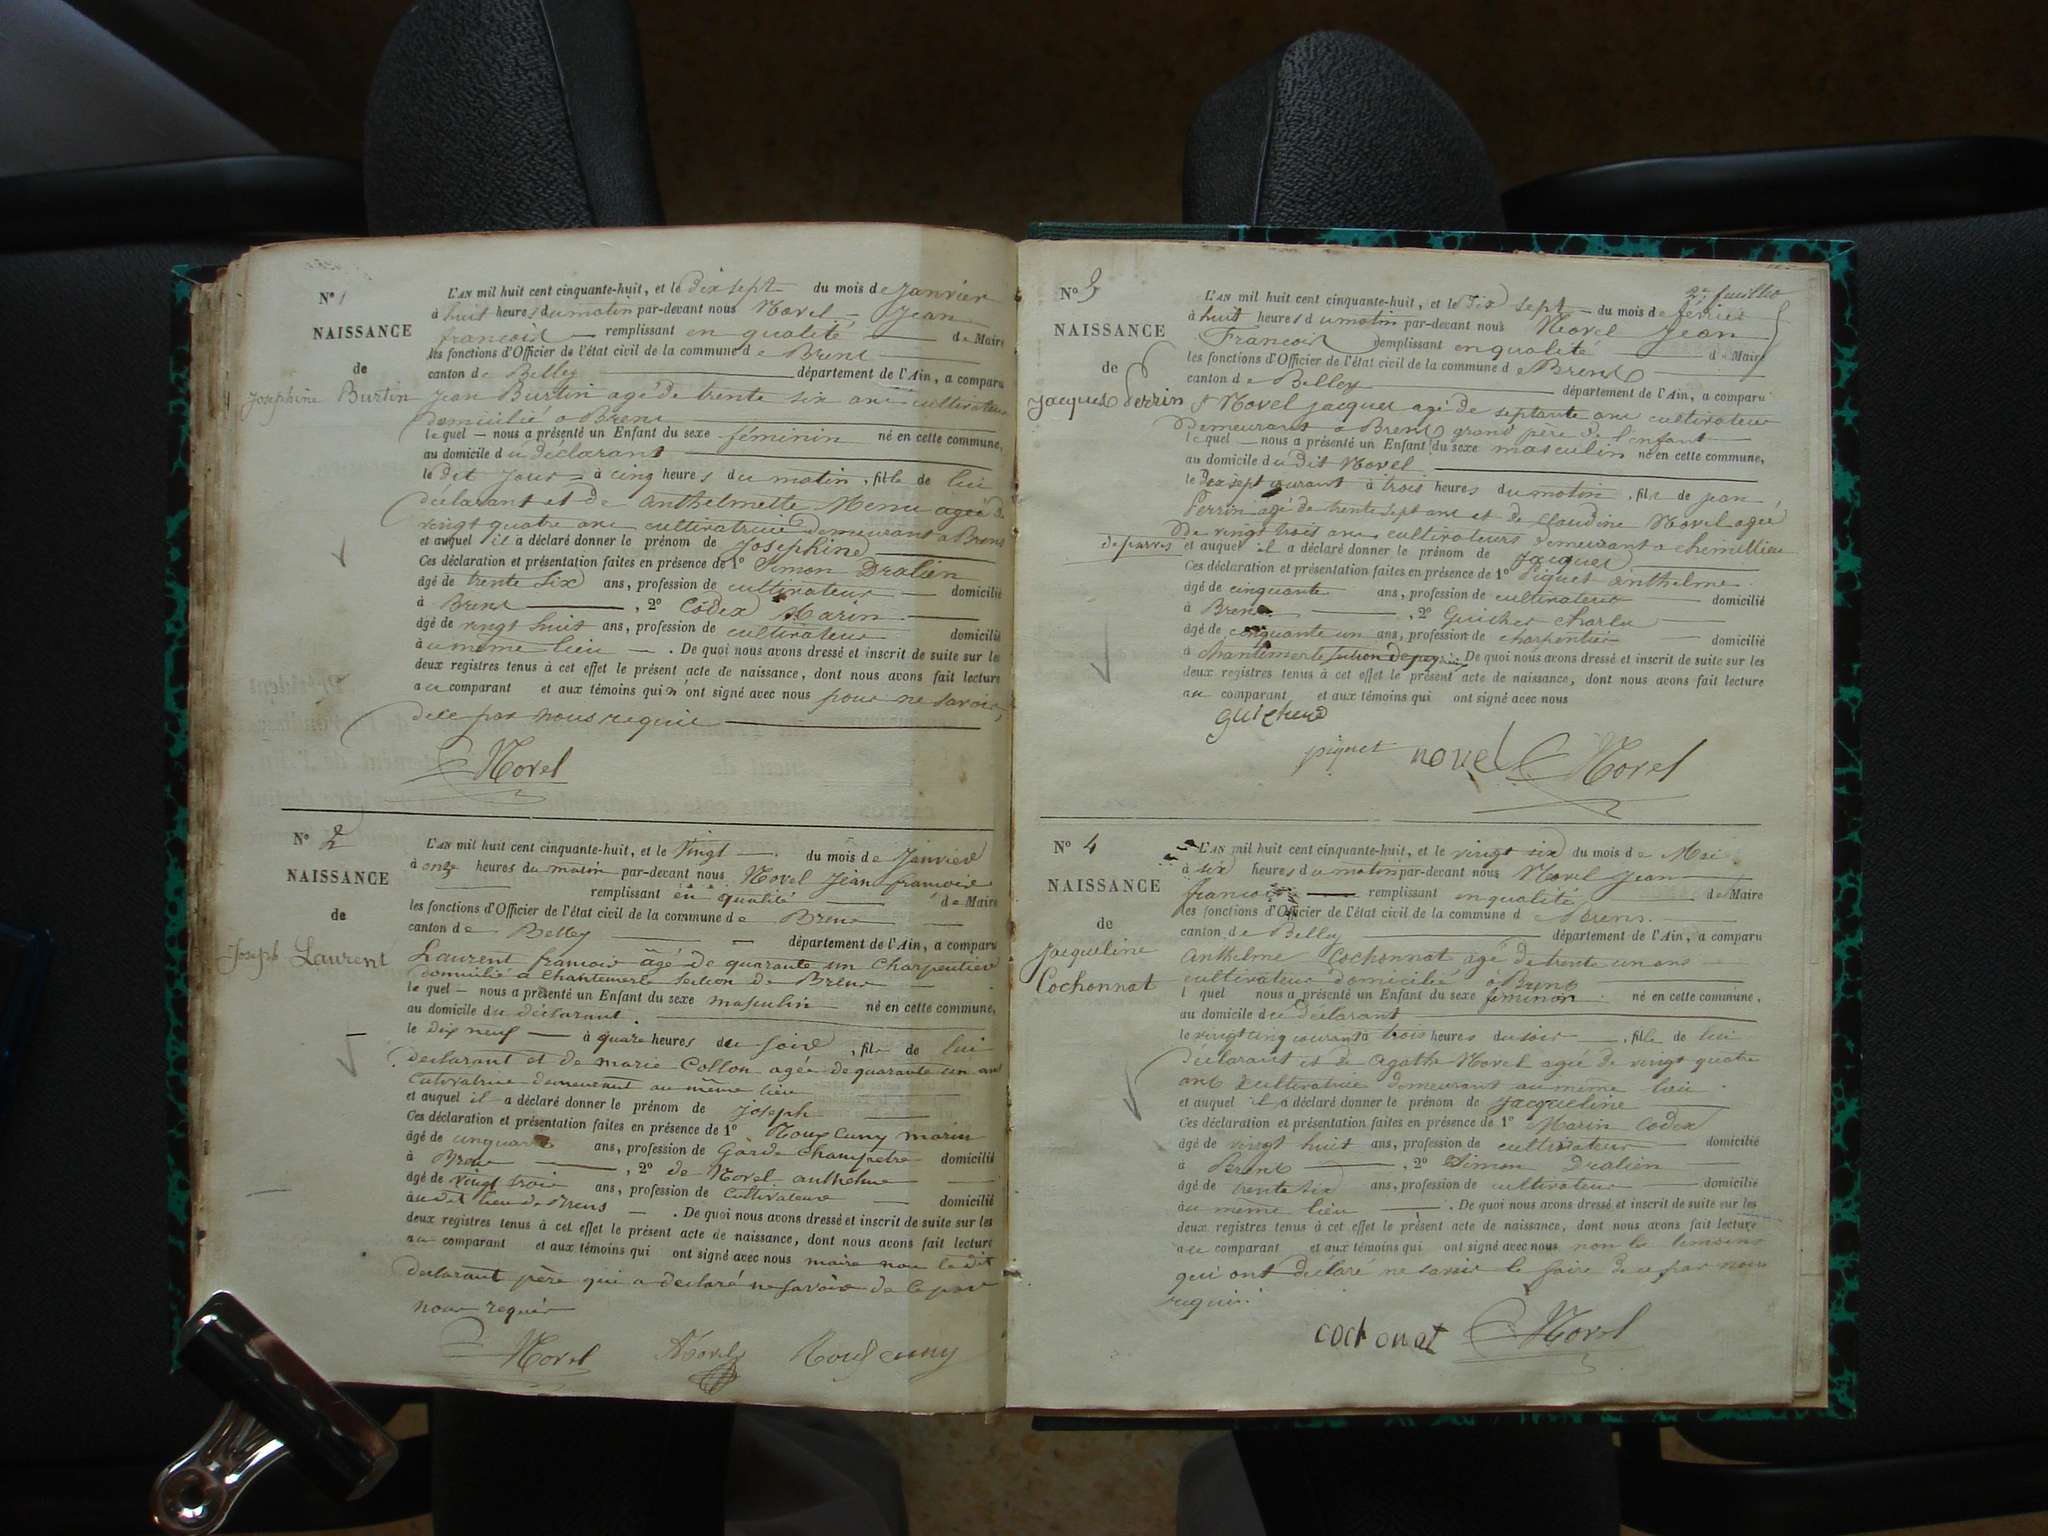 N° 1
NAISSANCE
de
Josephine Burtin
L'AN mil huit cent cinquante-huit, et le dix sept du mois de Janvier
à huit heures du matin par-devant nous Novel Jean
francois remplissant en qualité de Maire
les fonctions d'Officier de l'état civil de la commune de Brens
canton de Belley département de l'Ain, a comparu
Jean Burtin agé de trente six ans cultivateur
domicilié a Brens
lequel nous a présenté un Enfant du sexe féminin né en cette commune,
au domicile du déclarant
le dit jour à cinq heures du matin, fille de lui
déclarant et de anthelmette agée de
vingt quatre ans cultivatrice demeurant a Brens
et auquel il a déclaré donner le prénom de Josephine
Ces déclaration et présentation faites en présence de 1° Simon Dralien
âgé de trente six ans, profession de cultivateur domicilié
à Brens, 2° Codex Marin
âgé de vingt huit ans, profession de cultivateur domicilié
à u même lieu. De quoi nous avons dressé et inscrit de suite sur les
deux registres tenus à cet effet le présent acte de naissance, dont nous avons fait lecture
au comparant et aux témoins qui n'ont signé avec nous pour ne savoir,
de ce par nous requis
Novel
N° 2
NAISSANCE
de
Joseph Laurent
L'AN mil huit cent cinquante-huit, et le vingt du mois de Janvier
à onze heures du matin par-devant nous Novel Jean francois
remplissant en qualité de Maire
les fonctions d'Officier de l'état civil de la commune de Brens
canton de Belley département de l'Ain, a comparu
Laurent francois âgé de quarante un charpentier
domicilié a Chantemerle section de Brens
lequel nous a présenté un Enfant du sexe masculin né en cette commune,
au domicile du déclarant
le dix neuf à quatre heures du soir, fils de lui
déclarant et de marie Collon agée de quarante un ans
cultivatrice demeurant au même lieu
et auquel il a déclaré donner le prénom de joseph
Ces déclaration et présentation faites en présence de 1° Roux Cuny marin
âgé de cinquante ans, profession de Garde champetre domicilié
à Brens, 2° de Novel anthelme
âgé de vingt trois ans, profession de cultivateur domicilié
à u dit lieu de Brens. De quoi nous avons dressé et inscrit de suite sur les
deux registres tenus à cet effet le présent acte de naissance, dont nous avons fait lecture
au comparant et aux témoins qui ont signé avec nous maire non le dit
déclarant père qui a déclaré ne savoir de ce par
nous requis
Novel Novel Roux Cuny
2e feuillet
N° 3
NAISSANCE
de
Jacques Perrin
L'AN mil huit cent cinquante-huit, et le dix sept du mois de février
à huit heures du matin par-devant nous Novel Jean
Francois remplissant en qualité de Maire
les fonctions d'Officier de l'état civil de la commune de Brens
canton de Belley département de l'Ain, a comparu
Novel jacques agé de septante ans cultivateur
demeurant a Brens grand père de l'enfant
lequel nous a présenté un Enfant du sexe masculin né en cette commune,
au domicile du dit Novel
le dix sept courant à trois heures du matin, fils de jean
Perrin agé de trente sept ans et de Claudine Novel agée
de vingt trois ans cultivateurs demeurant a chemillieu
de parves
et auquel il a déclaré donner le prénom de Jacques
Ces déclaration et présentation faites en présence de 1° Piquet anthelme
âgé de cinquante ans, profession de cultivateur domicilié
à Brens, 2° Guicher charles
âgé de cinquante un ans, profession de charpentier domicilié
à Chantemerle section de. De quoi nous avons dressé et inscrit de suite sur les
deux registres tenus à cet effet le présent acte de naissance, dont nous avons fait lecture
au comparant et aux témoins qui ont signé avec nous
Guicherd
piquet novel Novel
N° 4
NAISSANCE
de
Jacqueline
Cochonnat
L'AN mil huit cent cinquante-huit, et le vingt six du mois de Mai
à six heures du matin par-devant nous Novel Jean
francois remplissant en qualité de Maire
les fonctions d'Officier de l'état civil de la commune de Brens
canton de Belley département de l'Ain, a comparu
Anthelme Cochonnat agé de trente un ans
cultivateur domicilié à Brens
lquel nous a présenté un Enfant du sexe féminin né en cette commune,
au domicile du déclarant
le vingt cinq courant à trois heures du soir, fille de lui
déclarant et de Agathe Novel agée de vingt quatre
ans cultivatrice demeurant au même lieu
et auquel il a déclaré donner le prénom de Jacqueline
Ces déclaration et présentation faites en présence de 1° Marin Codex
âgé de vingt huit ans, profession de cultivateur domicilié
à Brens, 2° Simon Dralien
âgé de trente six ans, profession de cultivateur domicilié
à u même lieu. De quoi nous avons dressé et inscrit de suite sur les
deux registres tenus à cet effet le présent acte de naissance, dont nous avons fait lecture
au comparant et aux témoins qui ont signé avec nous non les témoins
qui ont déclaré ne savoir le faire de ce par nous
requis
cochonat Novel